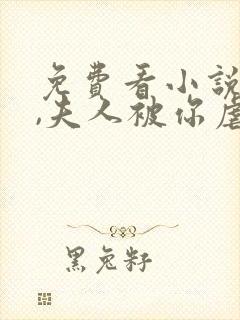 免費看小說
,夫人被你虐
黑兔籽